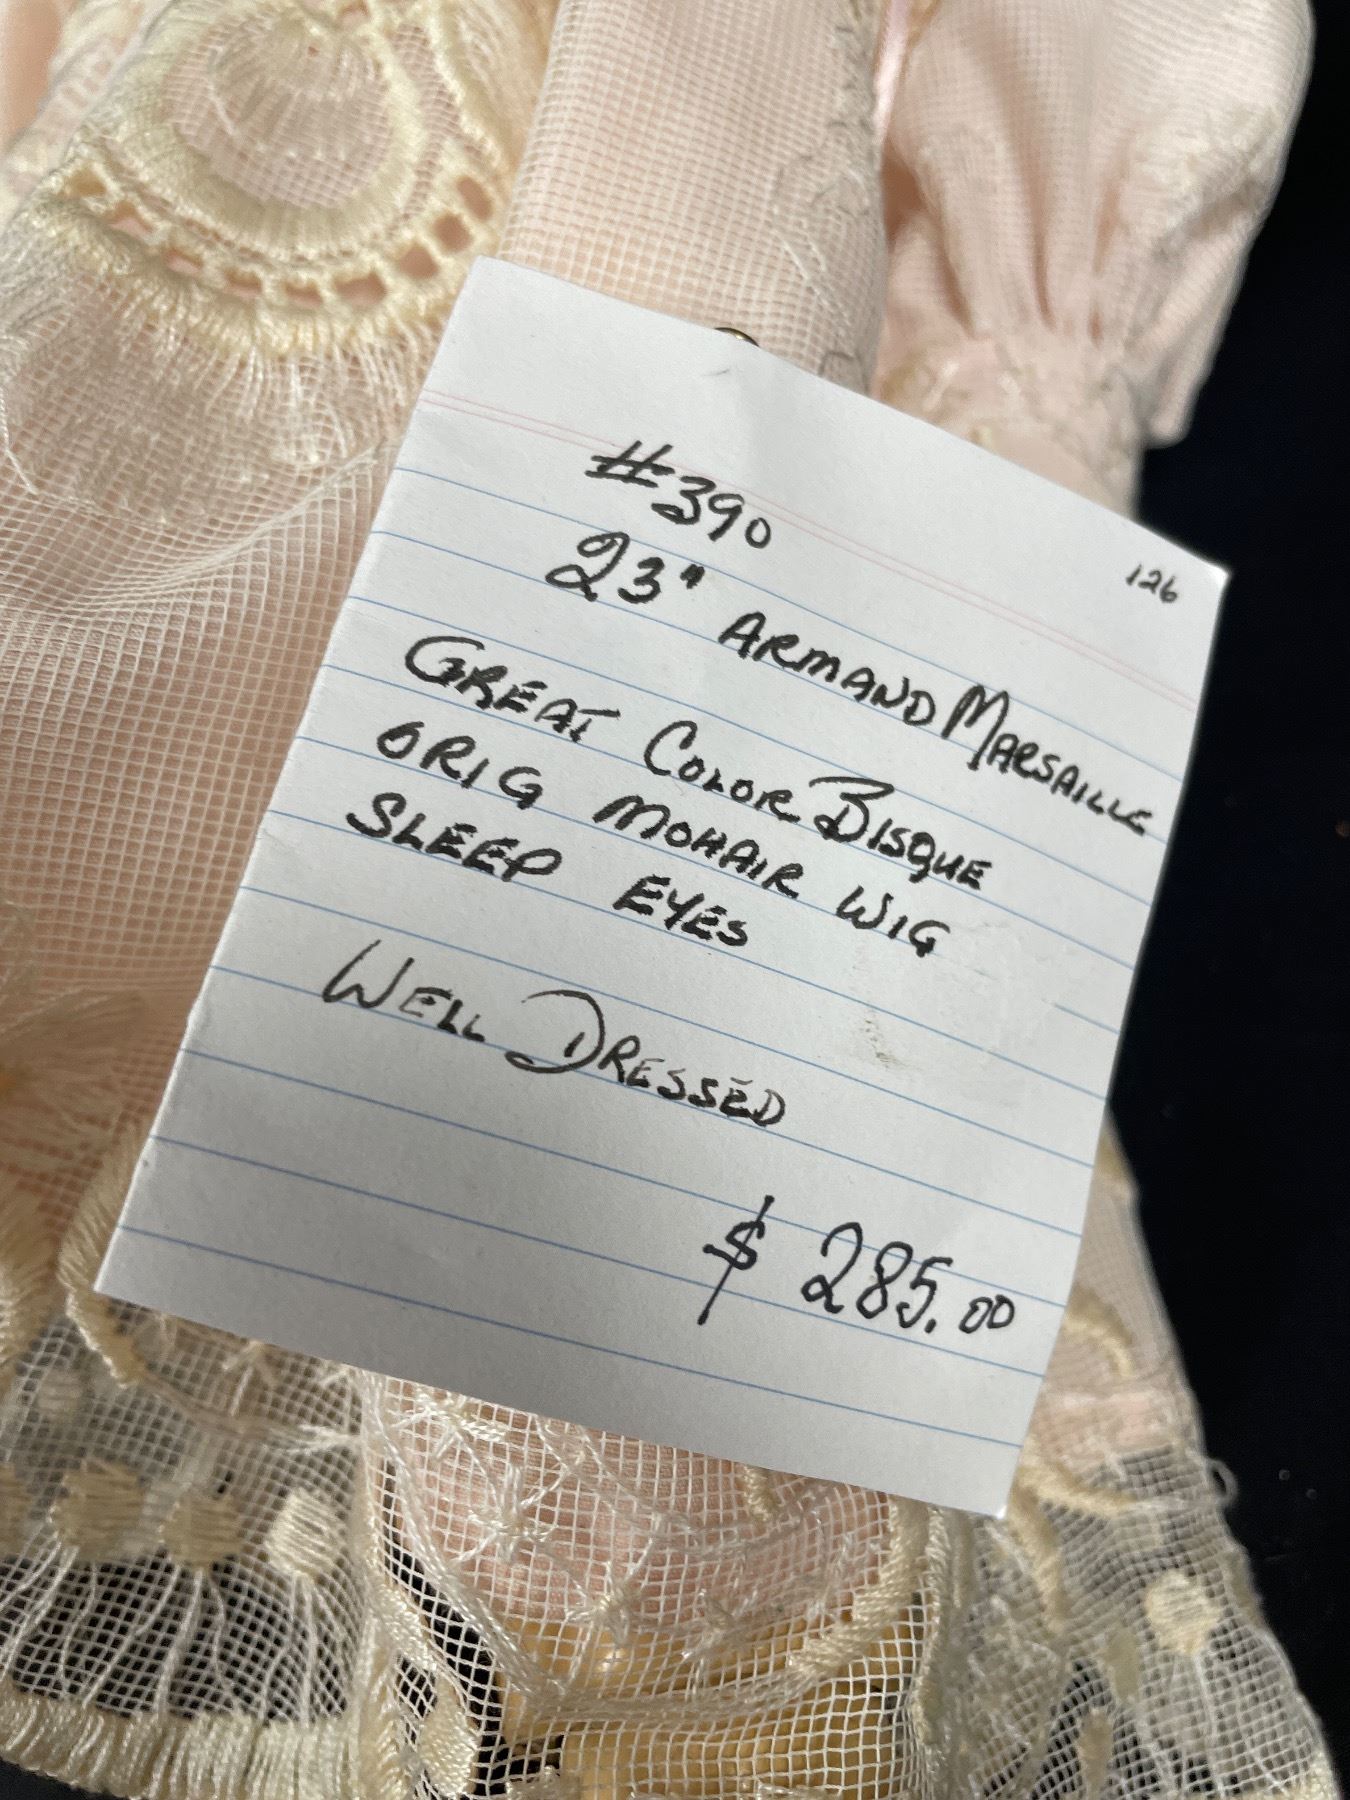 #390
126
23" ARMAND MARSAILLE
GREAT COLOR BISQUE
ORIG MOHAIR WIG
SLEEP EYES
WELL DRESSED
$ 285.00